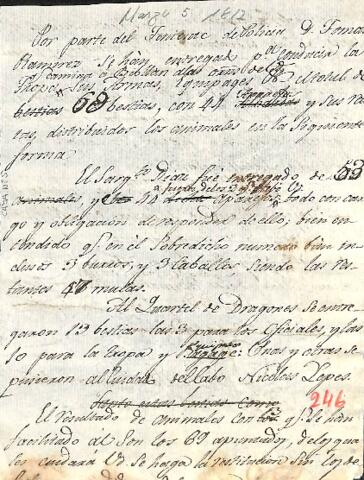 Marzo 5 1812
Por parte del Teniente de Policia D. Tomas
Ramirez se han entregado pa. conducir la
Tropa
sus armas, equipages &. el total de
bestias 68 bestias, con 44 y sus Re
tas, distribuidos los animales en la siguiente
forma
El Sargto. Diaz fue entregado de 53
animales, y 42 aparejos, todo con car
go y obligacion de responder de ello; bien en
tendido qe. en el sobredicho numero bien in
clusos 3 burros, y 3 caballos siendo las res
tantes 47 mulas.
Al Quartel de Dragones se entre
garon 13 bestias las 3 para los Oficiales, y las
10 para la tropa y Unas y otras se
pusieron al cuidado del Cabo Nicolas Lopes.
246
El resultado de animales con qe. se han
facilitado al son los 69 apuntados, de los que
se cuidará Vd. se haga la restitucion sin